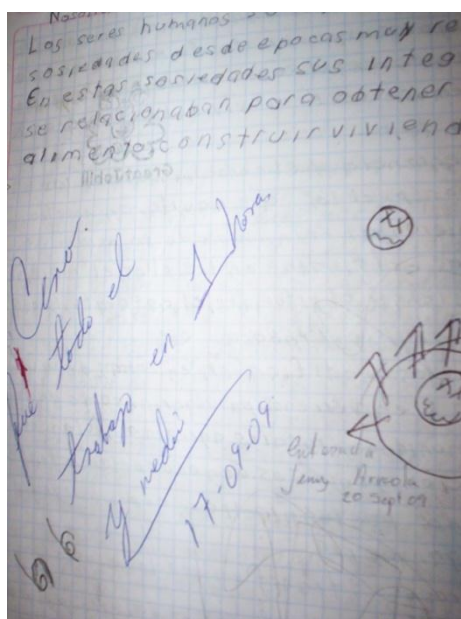 Los seres humanos
sosiedades desde epocas muy re
En estas sosiedades sus integ
se relacionaban para obtener
alimentos construir viviend
Cero.
Fue todo el
trabajo en 1 hora
y media
17-09-09
Enterada
Jenny Arreola
20 Sept 09